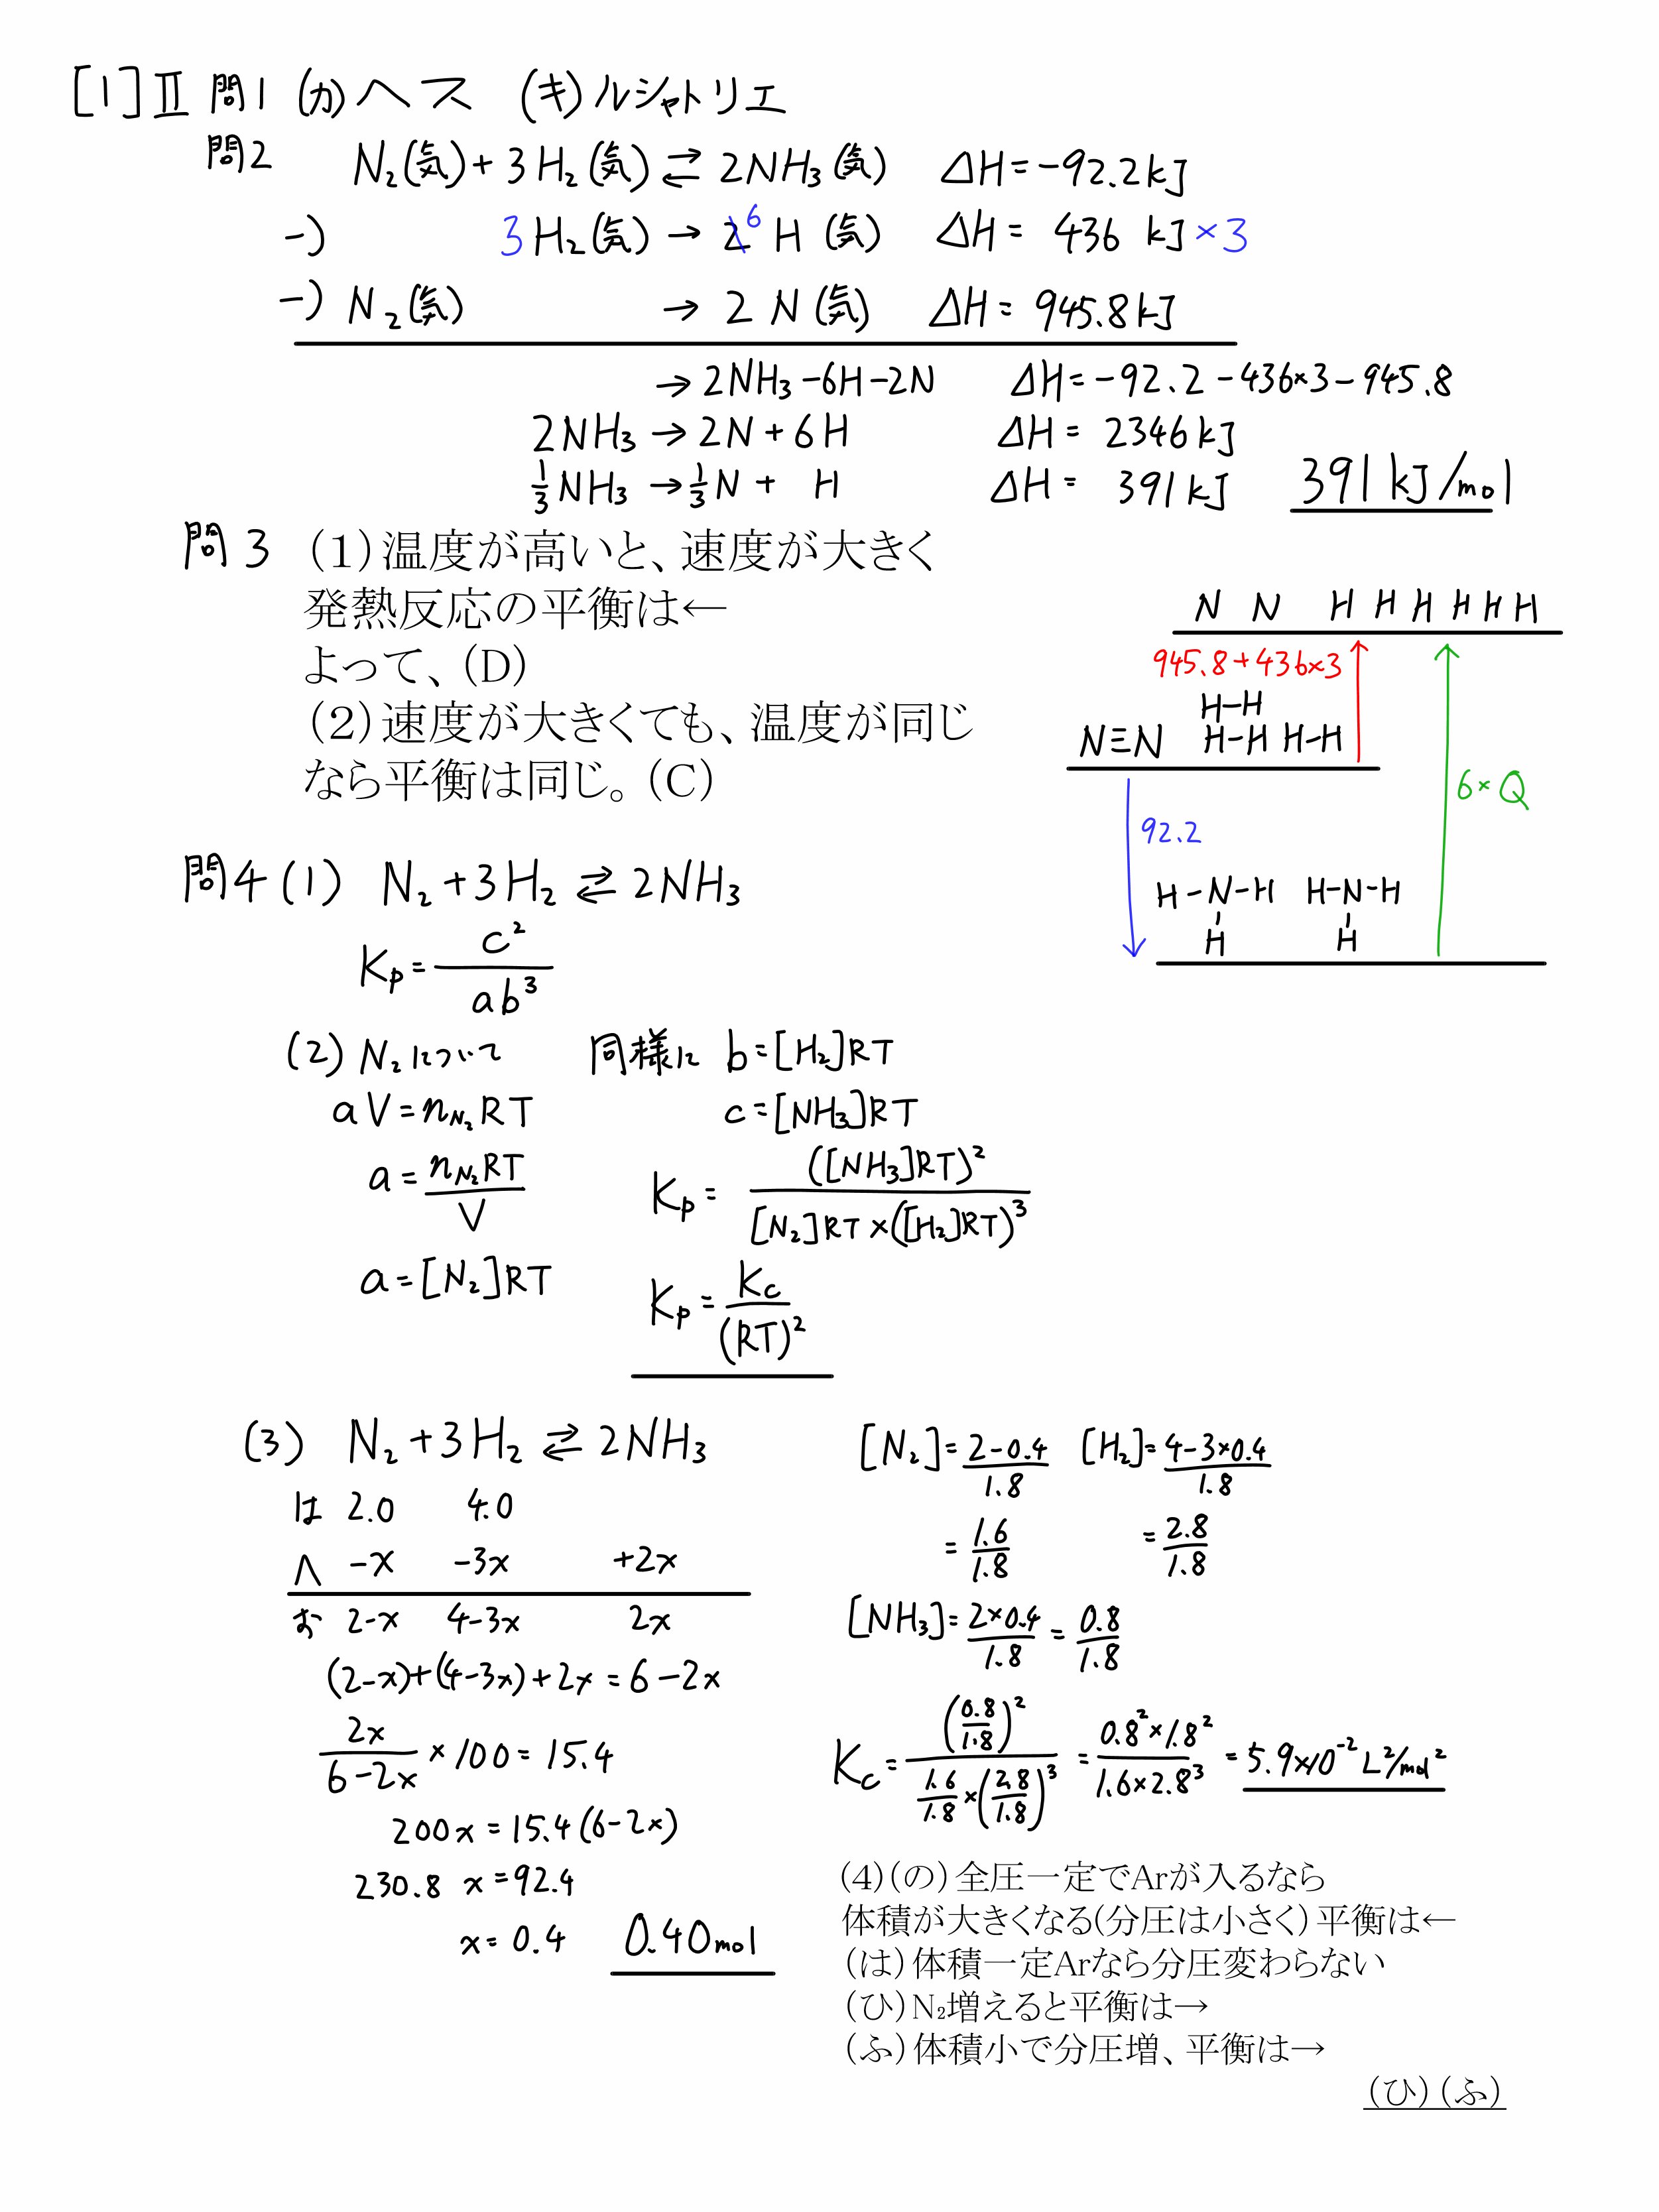 [1]Ⅱ 問1 (カ)ヘス (キ)ルシャトリエ
問2 N₂(気)+3H₂(気)⇄2NH₃(気) ΔH=-92.2kJ
-) 3H₂(気)→2 6 H(気) ΔH= 436 kJ×3
-) N₂(気) →2N(気) ΔH=945.8kJ
→2NH₃-6H-2N ΔH=-92.2-436×3-945.8
2NH₃→2N+6H ΔH=2346kJ
1/3NH₃→1/3N+ H ΔH= 391kJ 391kJ/mol
問3 (1)温度が高いと、速度が大きく
発熱反応の平衡は←
よって、(D)
(2)速度が大きくても、温度が同じ
なら平衡は同じ。(C)
N N H H H H H H
945.8+436×3
H-H
N≡N H-H H-H
6×Q
92.2
H-N-H H-N-H
H H
問4(1) N₂+3H₂⇄2NH₃
Kp=c²/ab³
(2)N₂について 同様に b=[H₂]RT
aV=nN₂RT c=[NH₃]RT
a=nN₂RT/V Kp=([NH₃]RT)²/[N₂]RT×([H₂]RT)³
a=[N₂]RT Kp=Kc/(RT)²
(3) N₂+3H₂⇄2NH₃
は 2.0 4.0
へ -x -3x +2x
お 2-x 4-3x 2x
(2-x)+(4-3x)+2x=6-2x
2x/6-2x×100=15.4
200x=15.4(6-2x)
230.8 x=92.4
x=0.4 0.40mol
[N₂]=2-0.4/1.8 [H₂]=4-3×0.4/1.8
=1.6/1.8 =2.8/1.8
[NH₃]=2×0.4/1.8=0.8/1.8
Kc=(0.8/1.8)²/1.6/1.8×(2.8/1.8)³=0.8²×1.8²/1.6×2.8³=5.9×10⁻²L²/mol²
(4)(の)全圧一定でArが入るなら
体積が大きくなる(分圧は小さく)平衡は←
(は)体積一定Arなら分圧変わらない
(ひ)N₂増えると平衡は→
(ふ)体積小で分圧増、平衡は→
(ひ)(ふ)